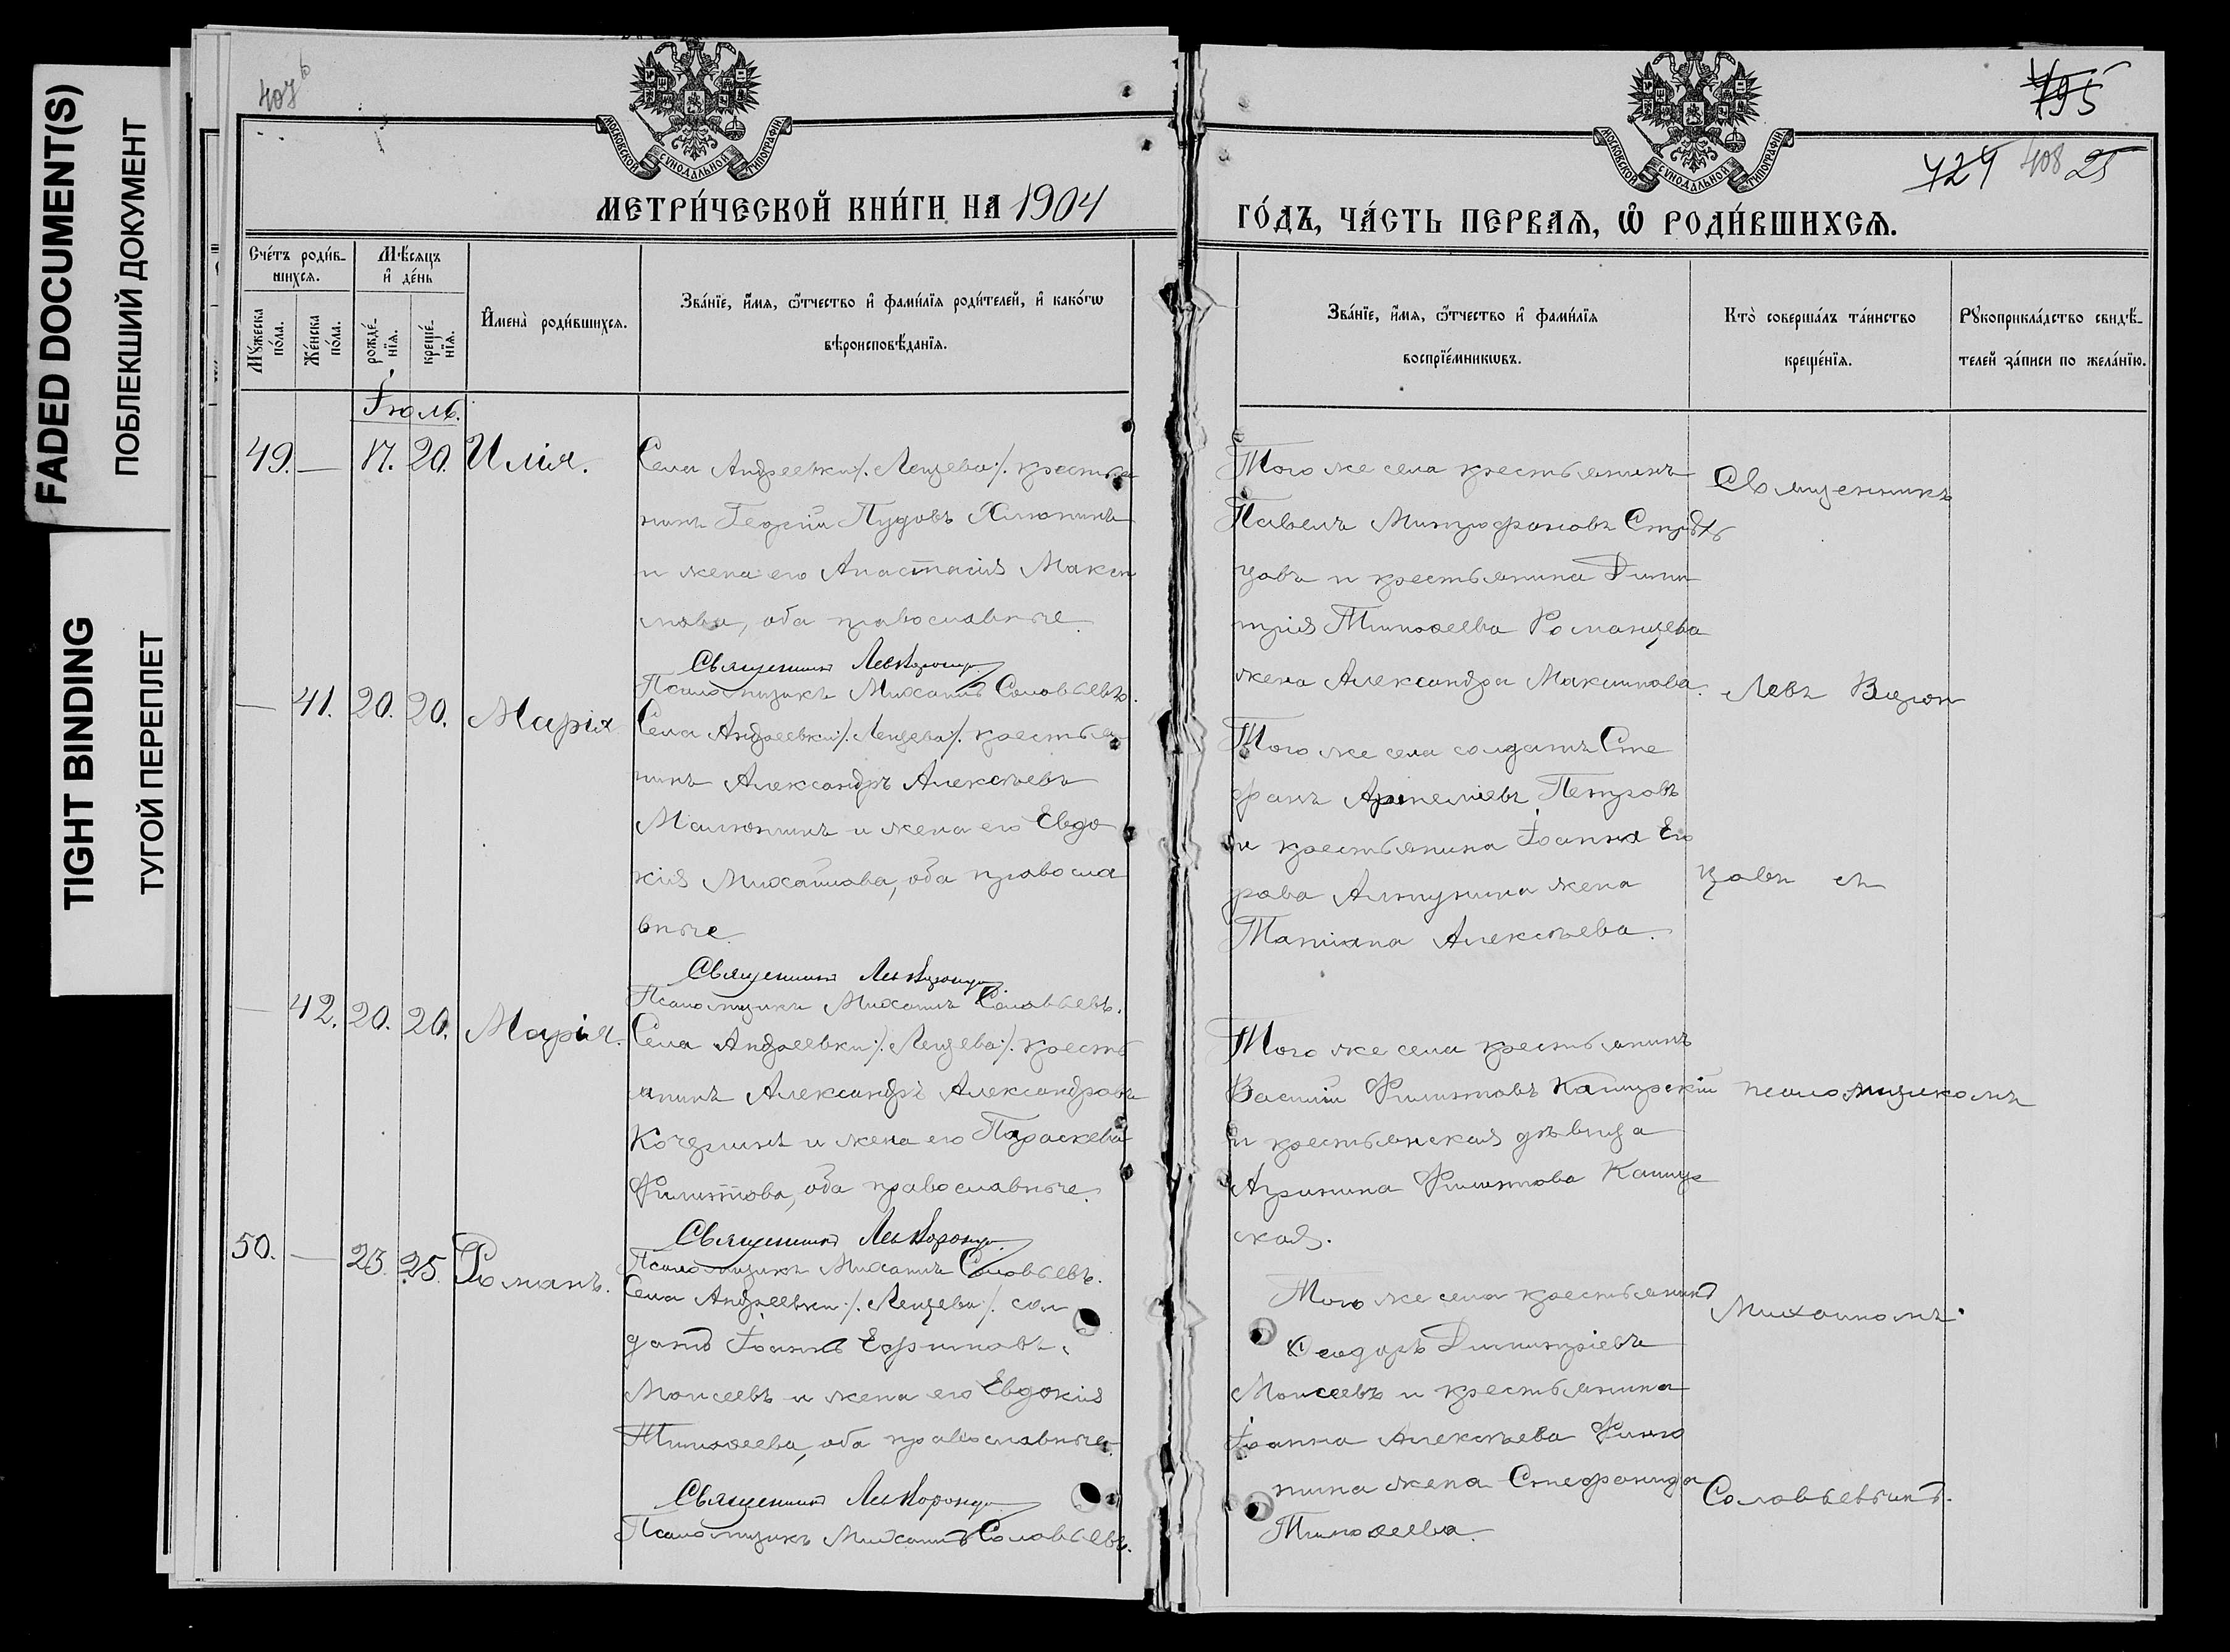 FADED DOCUMENT(S)
ПОБЛЕКШИЙ ДОКУМЕНТ
TIGHT BINDING
ТУГОЙ ПЕРЕПЛЕТ
407б
МОСКОВСКОЙ СѴНОДАЛЬНОЙ ТИПОГРАФІИ
МЕТРИ́ЧЕСКОЙ КНИ́ГИ НА 1904
Сче́тъ роди́в-
шихся.
Мѣ́сяцъ
и҆ де́нь
Мꙋ́жеска по́ла.
Же́нска по́ла.
рожде́-
нїя.
креще́-
нїя.
И҆мена̀ роди́вшихся.
Зва́нїе, и҆́мя, ѻ҆́тчество и҆ фами́лїя роди́телей, и҆ како́гѡ
вѣроисповѣ́данїя.
Іюль.
49. — 17. 20. Илія.
Села Андреевки /: Лещева :/ крестья
нинъ Георгій Пудовъ
и жена его Анастасія Макси
мова, оба православные.
Священникъ Левъ Воронцовъ
Псаломщикъ Михаилъ Соловьевъ.
— 41. 20. 20. Марія
Села Андреевки /: Лещева :/ крестья
нинъ Александръ Алексѣевъ
Малютинъ и жена его Евдо
кія Михайлова, оба правосла
вные.
Священникъ Левъ Воронцовъ
Псаломщикъ Михаилъ Соловьевъ.
— 42. 20. 20. Марія.
Села Андреевки /: Лещева :/ кресть
янинъ Александръ Александровъ
Кочергинъ и жена его Параскева
Филиппова, оба православные.
Священникъ Левъ Воронцовъ
Псаломщикъ Михаилъ Соловьевъ.
50. — 23. 25. Романъ.
Села Андреевки /: Лещева :/ сол
датъ Іоаннъ Ефимовъ
Моисеевъ и жена его Евдокія
Тимоѳеева, оба православные.
Священникъ Левъ Воронцовъ
Псаломщикъ Михаилъ Соловьевъ.
795
724 408 25
МОСКОВСКОЙ СѴНОДАЛЬНОЙ ТИПОГРАФІИ
ГО́ДЪ, ЧА́СТЬ ПЕРВАЯ, Ѡ҆ РОДИ́ВШИХСЯ.
Зва́нїе, и҆́мя, ѻ҆́тчество и҆ фами́лїя
воспрїе́мникѡвъ.
Кто̀ соверша́лъ та́инство
креще́нїя.
Рꙋкоприкла́дство свидѣ́-
телей за́писи по жела́нїю.
Того же села крестьянинъ
Павелъ Митрофановъ
цовъ и крестьянина Дими
трія Тимоѳеева Романцева
жена Александра Максимова.
Того же села солдатъ Сте
фанъ Артемьевъ Петровъ
и крестьянина Іоанна Его
рова Алтунина жена
Татіана Алексѣева.
Того же села крестьянинъ
Василій Филипповъ Каширскій
и крестьянская дѣвица
Агрипина Филиппова Кашир
ская.
Того же села крестьянинъ
Ѳеодоръ Димитріевъ
Моисеевъ и крестьянина
Іоанна Алексѣева
жена Стефанида
Тимоѳеева.
Священникъ
Левъ Ворон
цовъ съ
псаломщикомъ
Михаиломъ
Соловьевымъ.